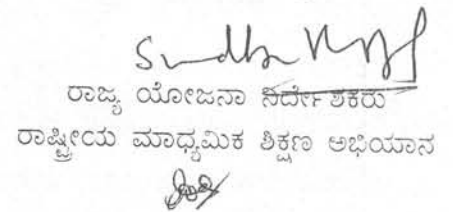 ರಾಜ್ಯ ಯೋಜನಾ ನಿರ್ದೇಶಕರು
ರಾಷ್ಟ್ರೀಯ ಮಾಧ್ಯಮಿಕ ಶಿಕ್ಷಣ ಅಭಿಯಾನ